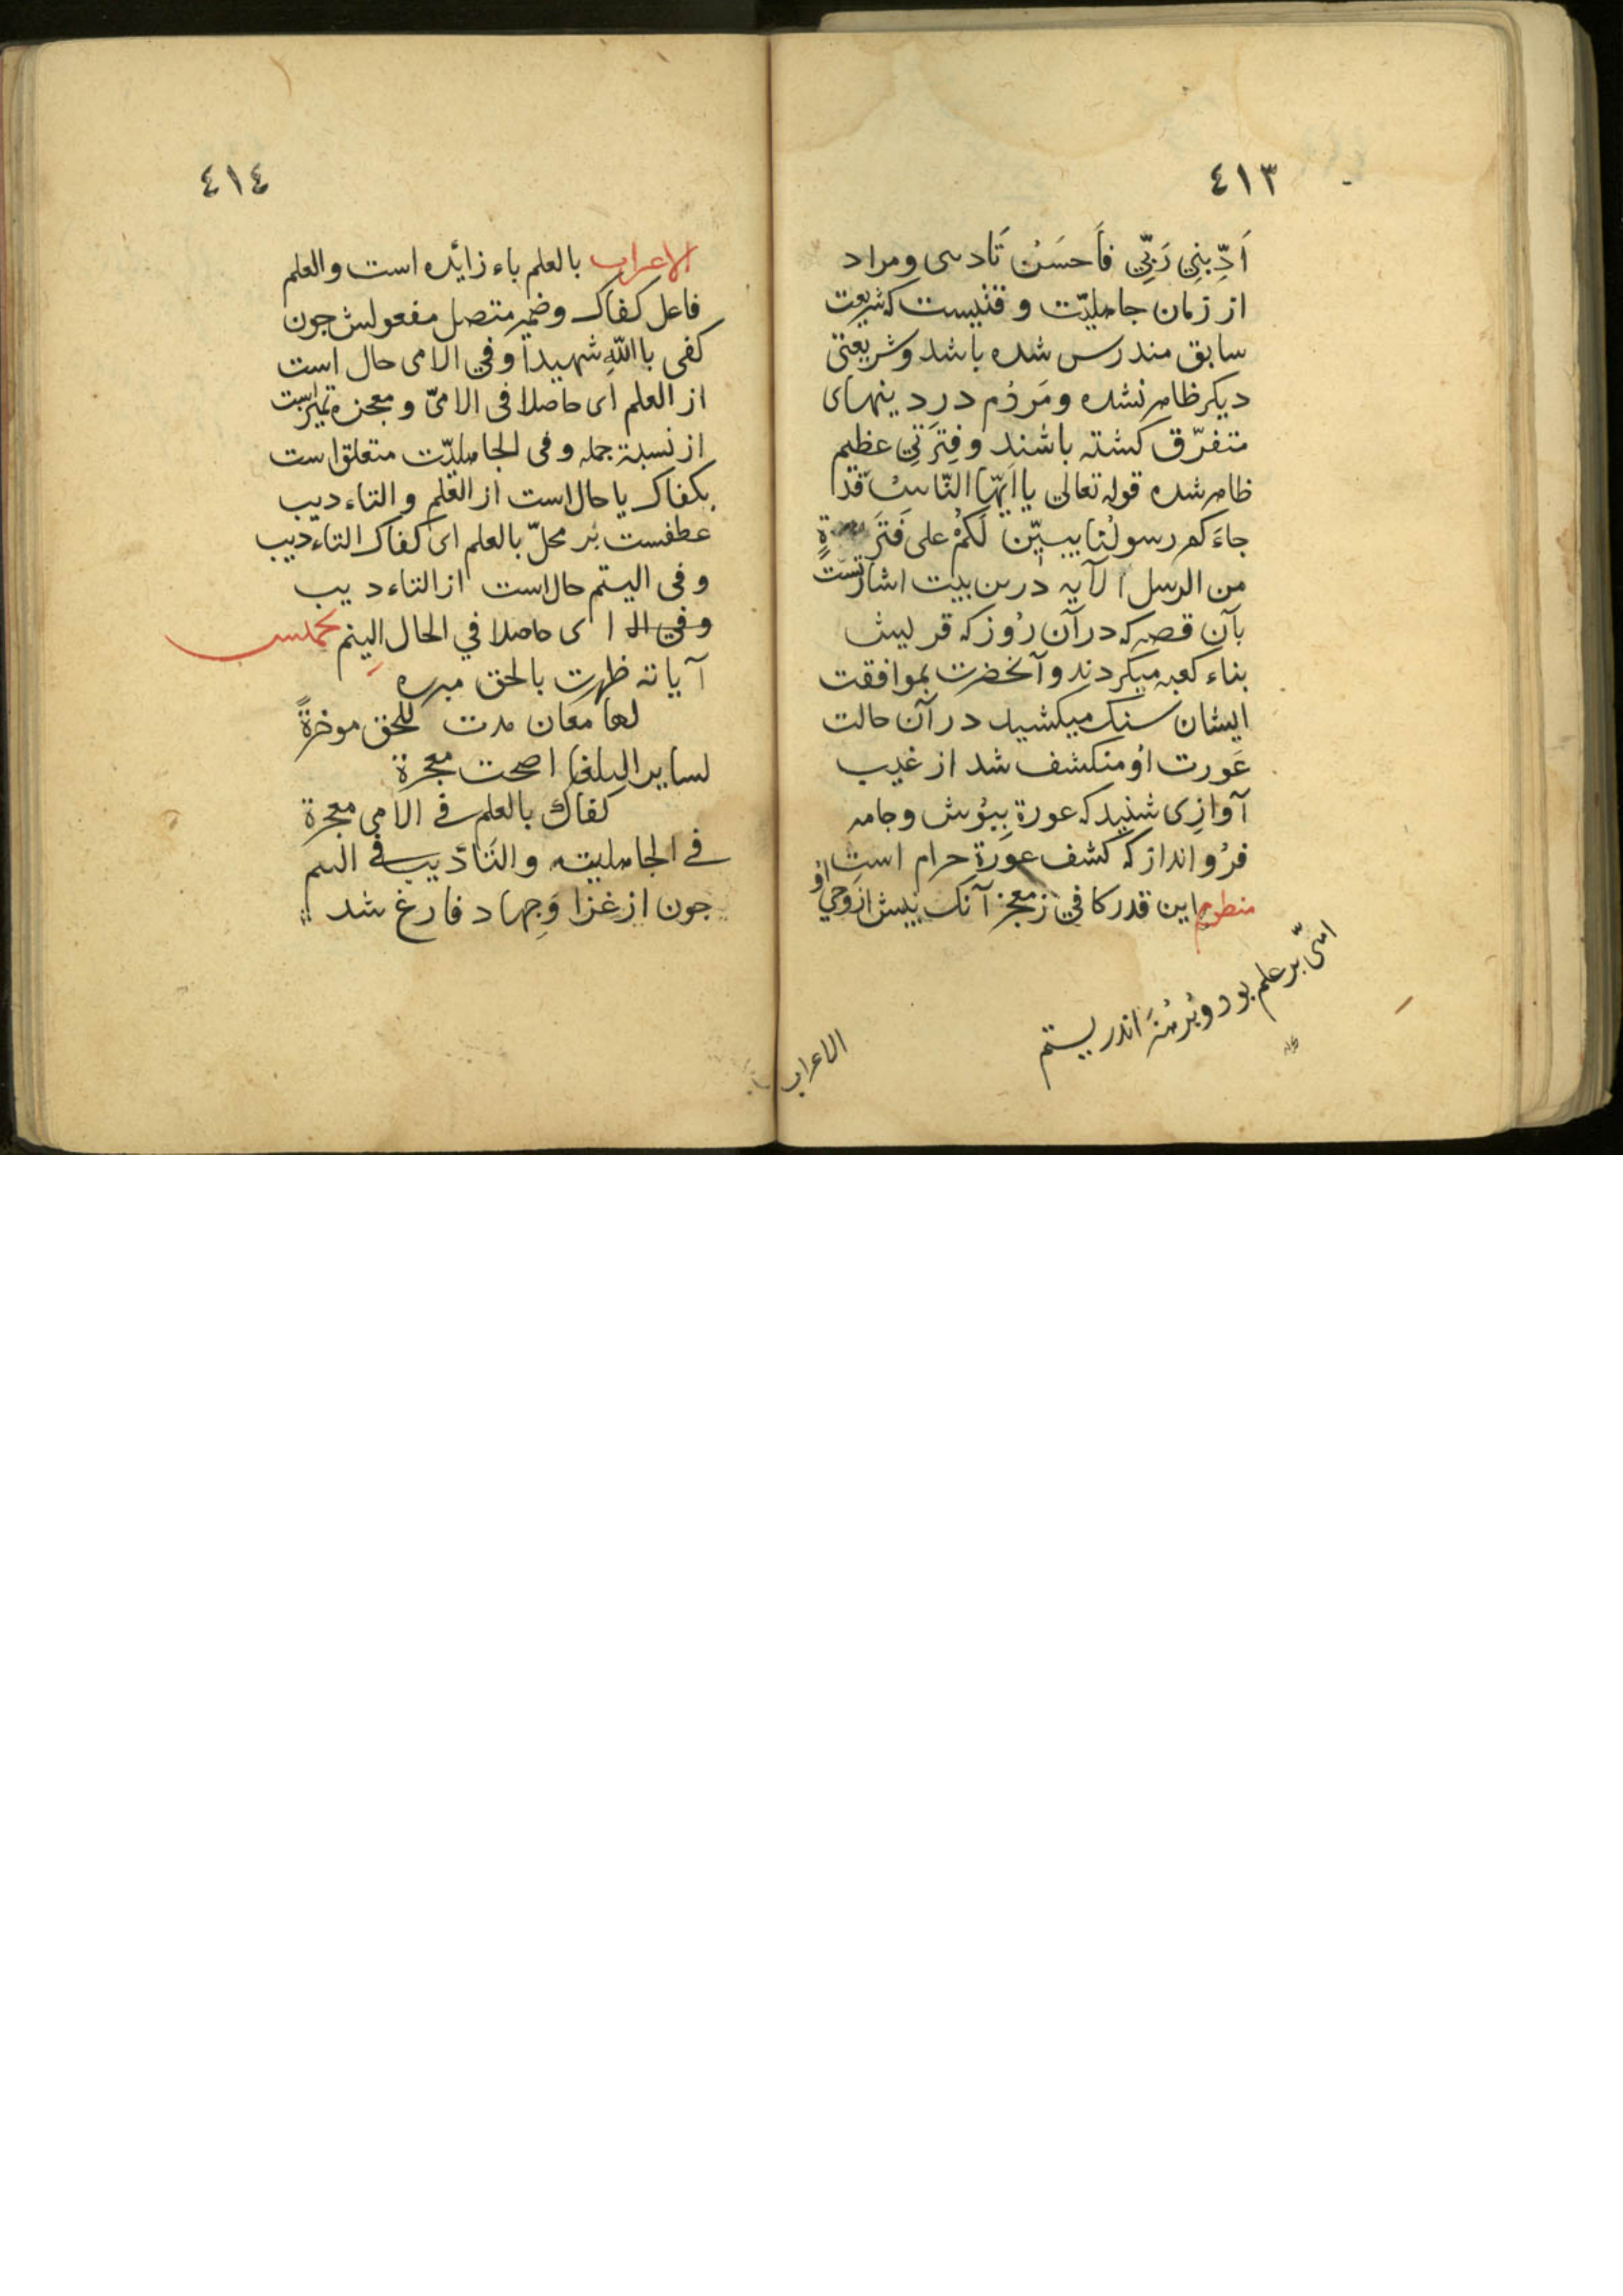 ٤١٣
اَدِّبنِي رَبِّي فَاَحسَنُ تَادسى ومراد
از زمان جاهليّت وقتيست كه شريعت
سابق مندرس شده باشد وشريعتى
ديكر ظاهر نشده ومَردُم در دينهاى
متفرّق كشته باشند وفِترَتِي عظيم
ظاهر شده قوله تعالى يا اَيّها النّاسُ قَد
جاءَكم رسولُنا يبيّن لَكُمْ على فَترَةٍ
من الرسل الآيه درين بيت اشارتست
بآن قصه كه در آن رُوز كه قريش
بناء كعبه ميكردند وآنحضرت بموافقت
ايشان سنك ميكشيد در آن حالت
عَورت اوُ منكشف شد از غيب
آوازِى شنيد كه عورة بپُوش وجامه
فرُو انداز كه كشف عَورة حرام است
منظوم اين قدر كافي ز معجز آنك پيش از وَحي اوُ
امّى بر علم بود و پُر هنر اندر يتيم
الاعراب
٤١٤
الاعراب بالعلم باء زايده است والعلم
فاعل كفاك وضمير متصل مفعولش جون
كفى باالله شهيداً وفي الامى حال است
از العلم اى حاصلا فى الامىّ ومعجزه تميزاست
از نسبة جمله وفى الجاهليّت متعلق است
بكفاك يا حال است از العلم والتاءديب
عطفست بَر محلّ بالعلم اى كفاك التاءديب
وفى اليتم حال است از التاءديب
وفي الـ اى حاصلا في الحال اليتم تخميس
آياته ظهرت بالحق مبره
لها معان مدت للحق موخرةً
لساير البلغا اصحت معجزة
كفاك بالعلم في الامي معجزة
في الجاهليته والتَاَديب في اليتم
جون از غزا وَجهاد فارغ شد